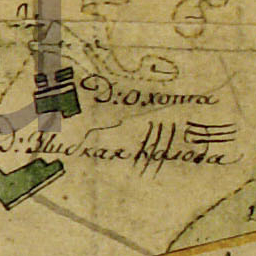 Д: Охота
Д: Зыбкая Колода